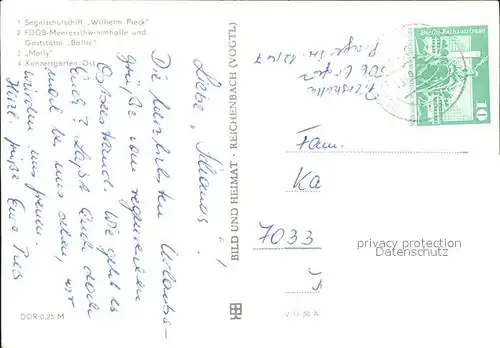 1 Segelschulschiff „Wilhelm Pieck"
2 FDGB-Meeresschwimmhalle und
Gaststätte „Baltic"
3 „Molly"
4 Konzertgarten Ost
Liebe
Die herzlichsten Urlaubs-
grüße vom regnerischen
Ostseestrand. Wie geht es
Euch? Laßt Euch doch
mal bei uns sehen, wir
würden uns freuen.
Viele Grüße Eure
DDR 0,25 M
BILD UND HEIMAT · REICHENBACH (VOGTL)
V 11 50 A
Erfurt
10
Fam.
Ka
7033
privacy protection
Datenschutz